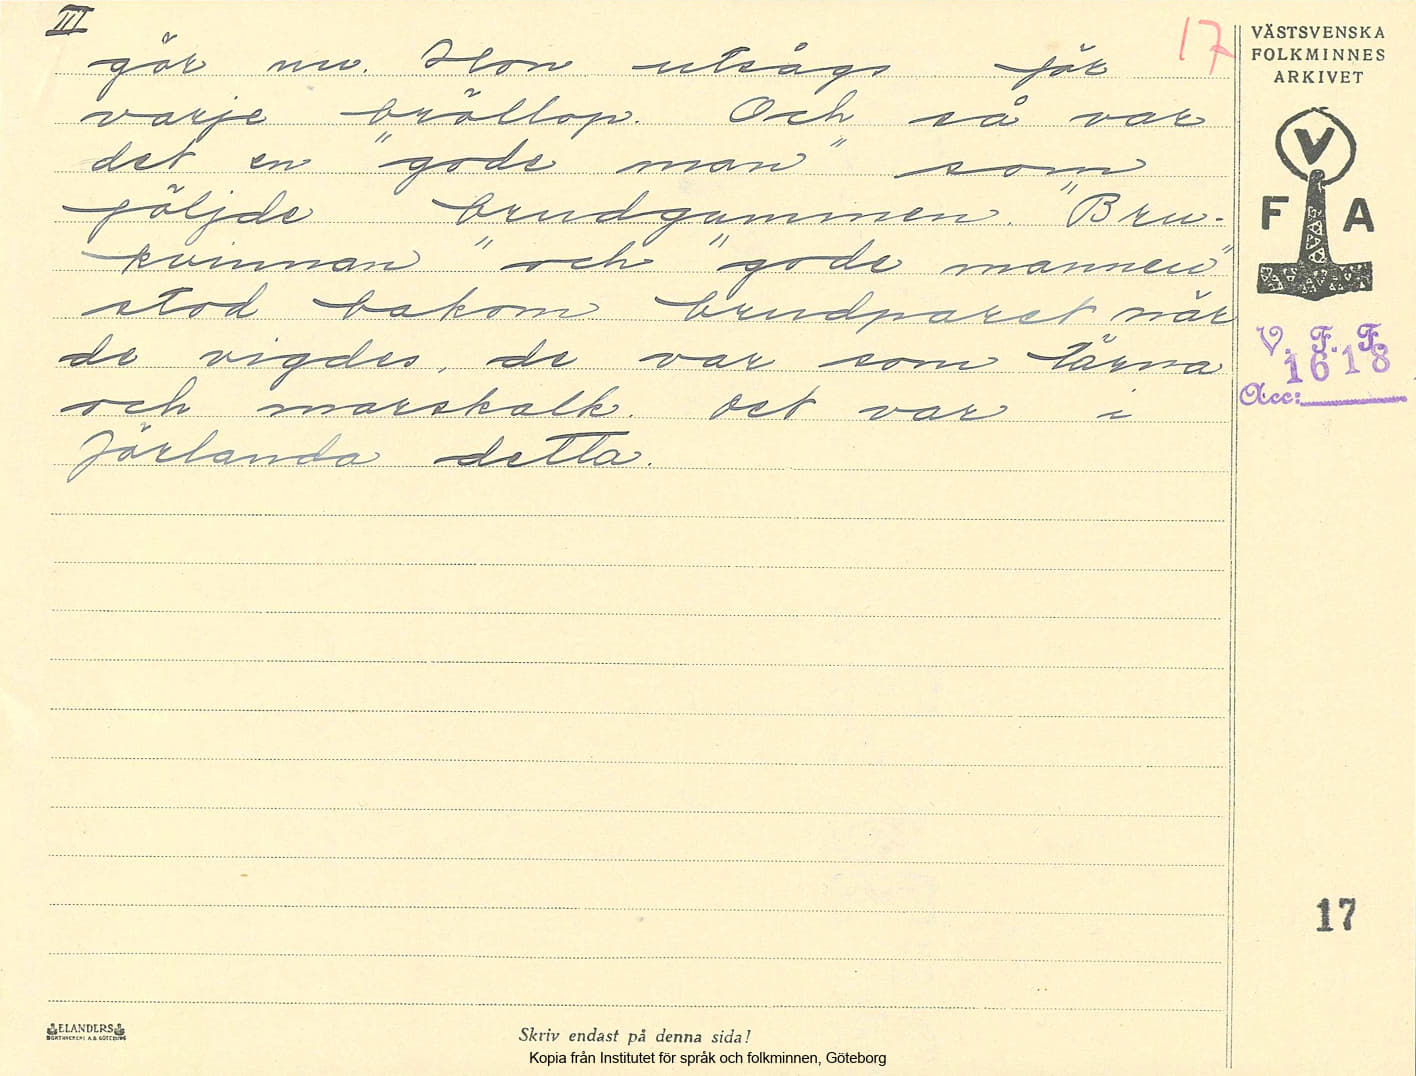 III
17
gör nu. Hon utsågs för
varje bröllop. Och så var
det en "gode man" som
följde brudgummen. "Bru-
kvinnan" och "gode mannen"
stod bakom brudparet när
de vigdes, de var som tärna
och marskalk. Det var i
Jörlanda detta.
VÄSTSVENSKA
FOLKMINNES
ARKIVET
V
F A
V. F. F.
1618
Acc:
17
ELANDERS
Skriv endast på denna sida!
Kopia från Institutet för språk och folkminnen, Göteborg